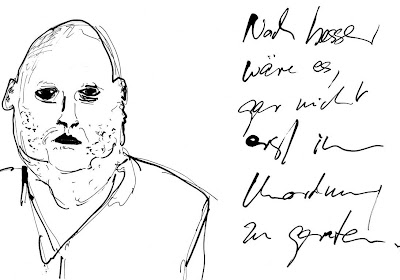 Noch besser
wäre es,
gar nicht
erst in
Unordnung
zu geraten.